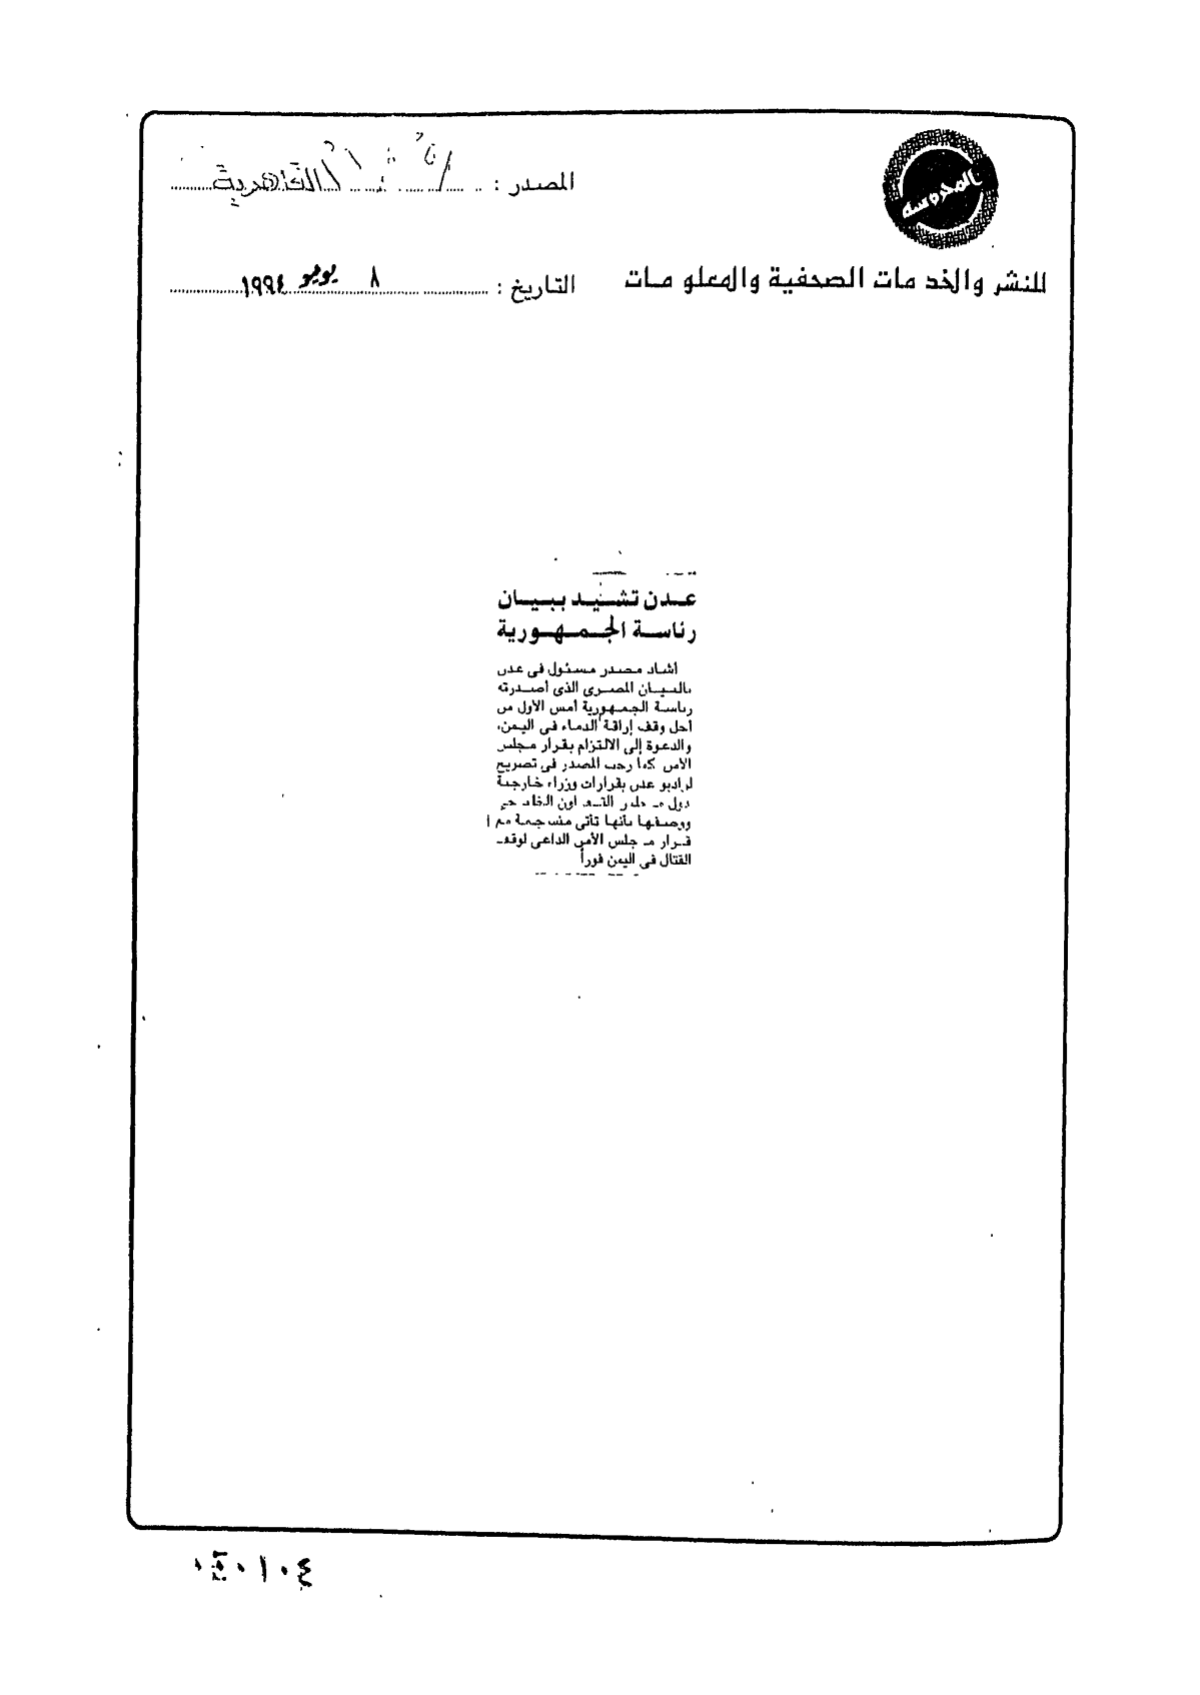 المحروسة
المصدر : القاهرية
للنشر والخدمات الصحفية والمعلومات
التاريخ : ٨ يونيو ١٩٩٤
عدن تشيد ببيان
رئاسة الجمهورية
اشاد مصدر مسئول فى عدن
بالبيان المصرى الذى أصدرته
رئاسة الجمهورية أمس الأول من
أجل وقف إراقة الدماء فى اليمن،
والدعوة إلى الالتزام بقرار مجلس
الأمن كما رحب المصدر فى تصريح
لراديو عدن بقرارات وزراء خارجية
دول مجلس التعاون الخليجى
ووصفها بأنها تأتى منسجمة مع
قرار مجلس الأمن الداعى لوقف
القتال فى اليمن فوراً